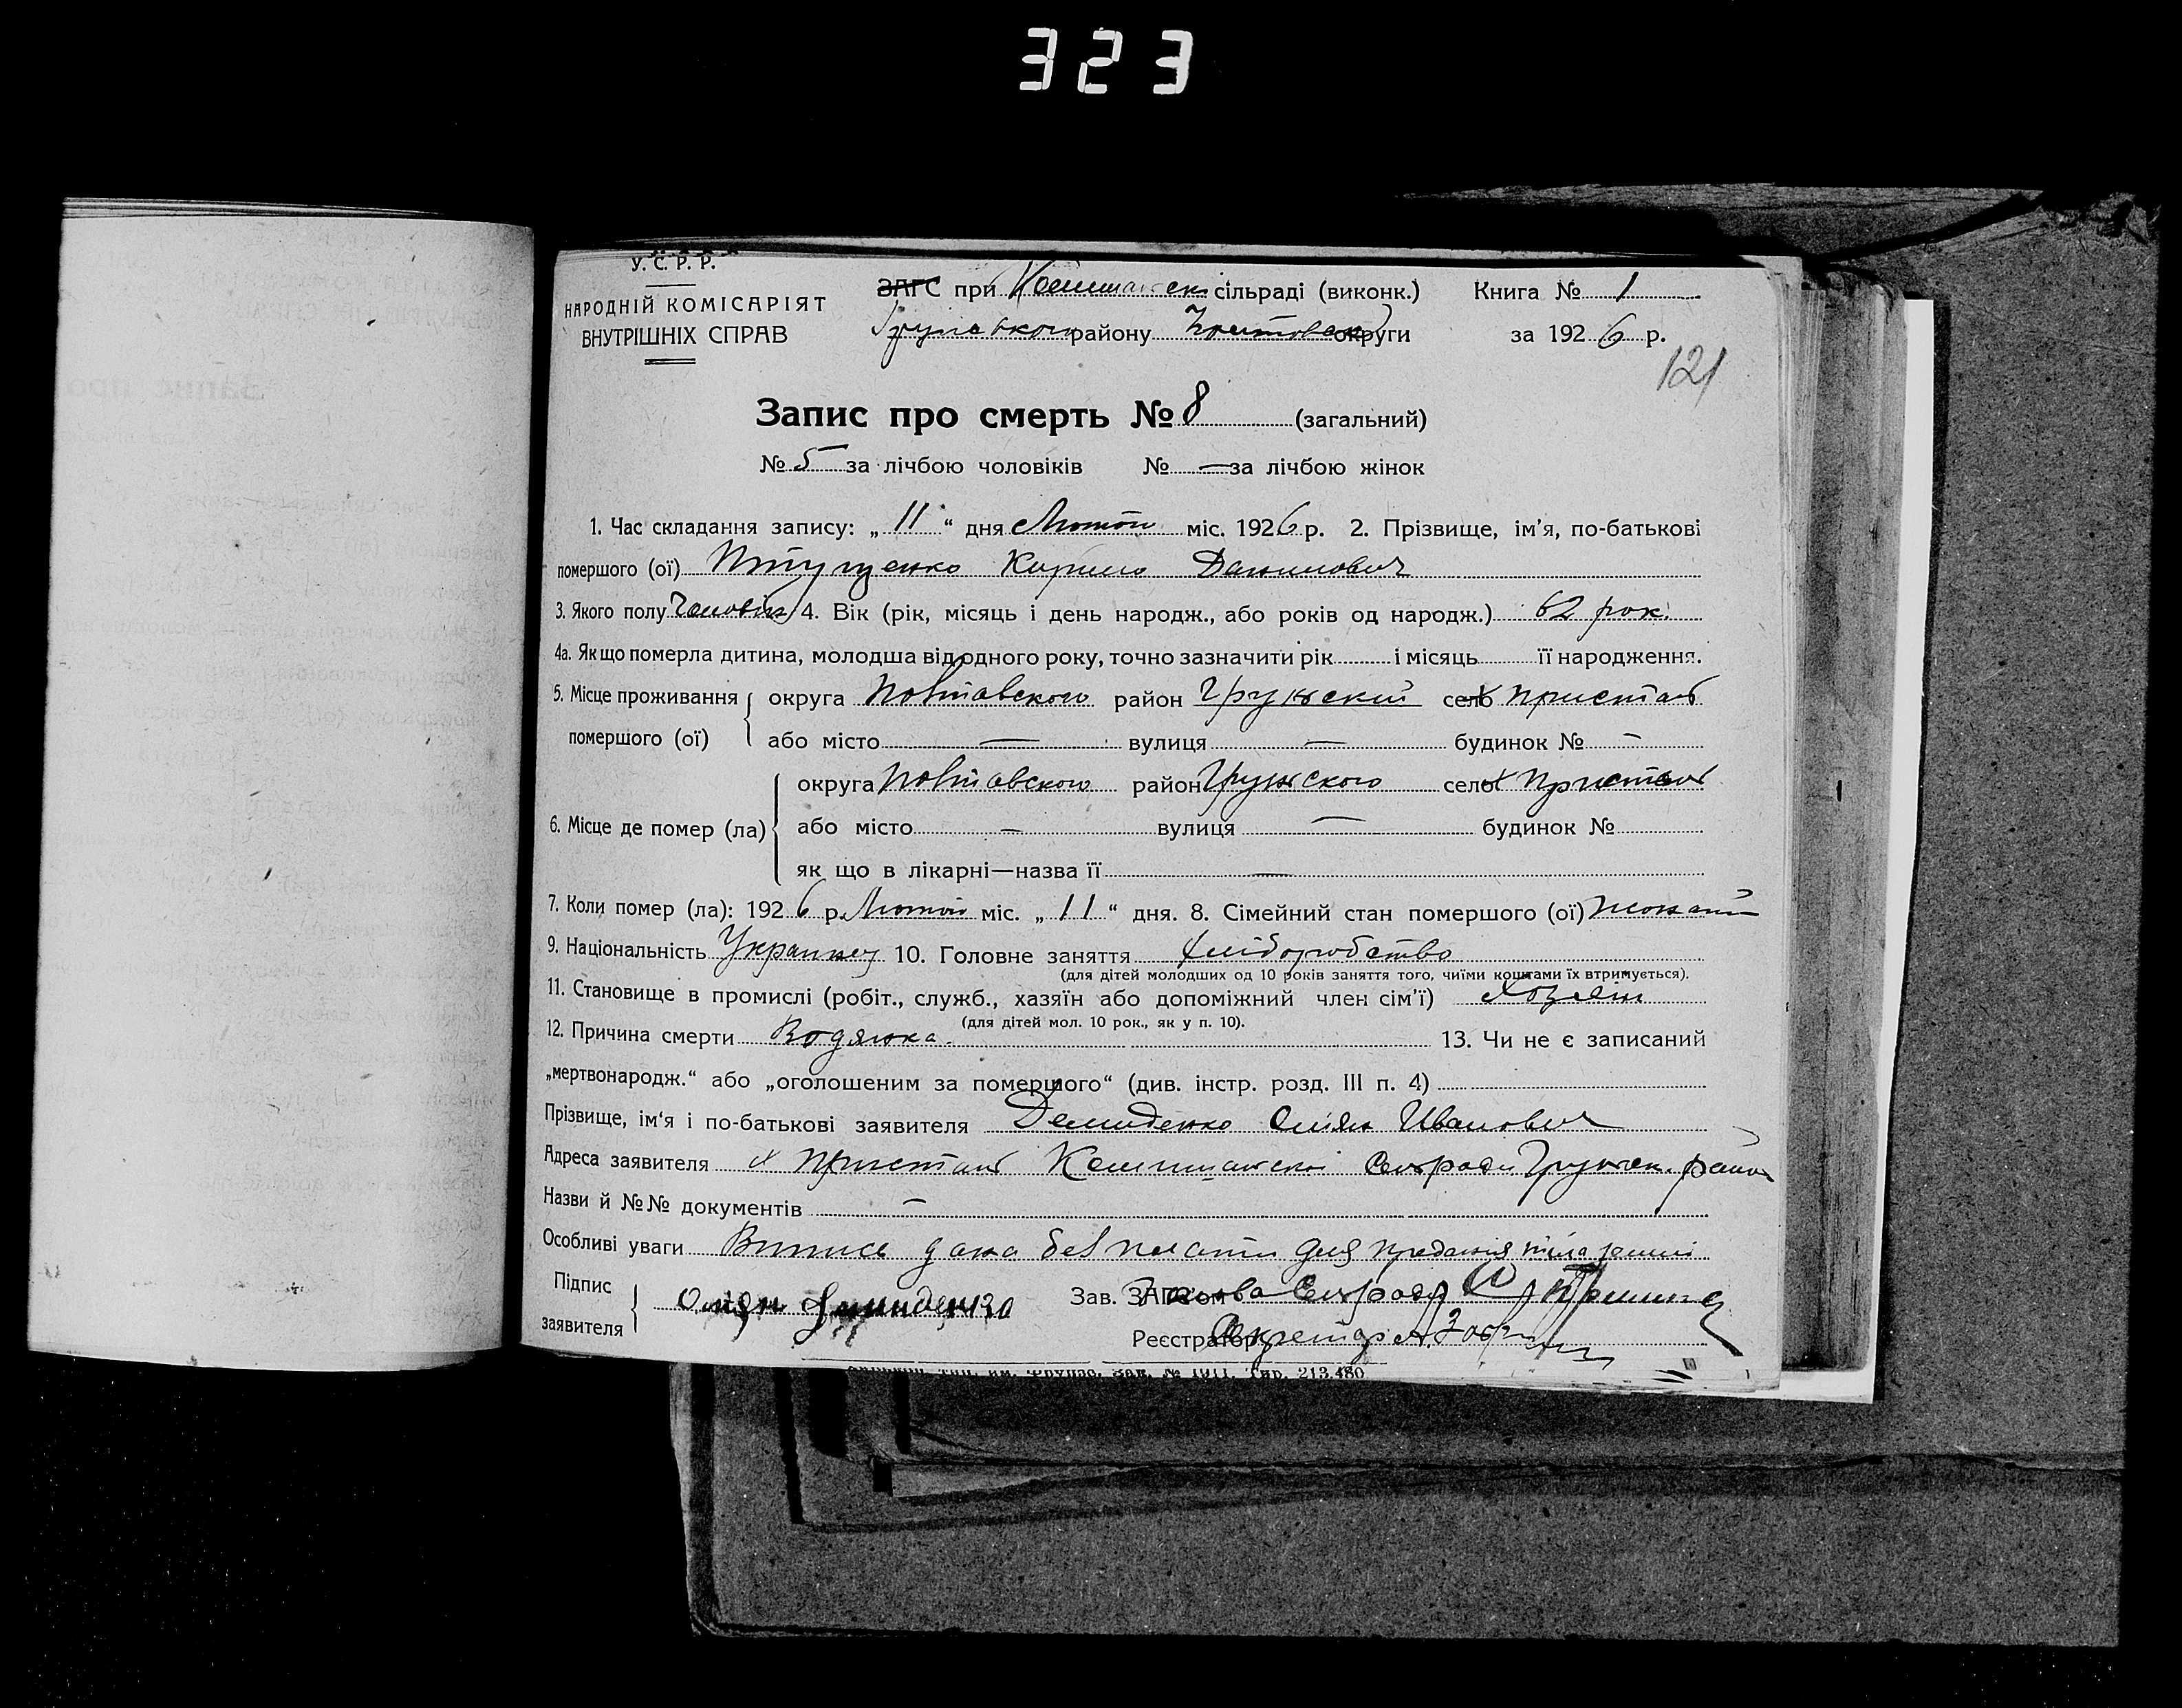 323
У. С. Р. Р.
НАРОДНІЙ КОМІСАРІЯТ
ВНУТРІШНІХ СПРАВ
ЗАГС при сільраді (виконк.) Книга № 1
району округи за 1926 р.
121
Запис про смерть № 8 (загальний)
№ 5 за лічбою чоловіків № — за лічбою жінок
1. Час складання запису: „ 11 “ дня міс. 1926 р. 2. Прізвище, ім'я, по-батькові
помершого (ої) Кирило Данилович
3. Якого полу Чоловік 4. Вік (рік, місяць і день народж., або років од народж.) 62 рок.
4а. Як що померла дитина, молодша від одного року, точно зазначити рік і місяць її народження.
5. Місце проживання округа Повтавского район Грунский село х Пристань
помершого (ої) або місто — вулиця — будинок № —
округа Повтавского район Грунского село х Пристань
6. Місце де помер (ла) або місто — вулиця — будинок №
як що в лікарні—назва її —
7. Коли помер (ла): 1926 р. міс. „ 11 “ дня. 8. Сімейний стан помершого (ої)
9. Національність 10. Головне заняття хліборобство
(для дітей молодших од 10 років заняття того, чиїми коштами їх втримується).
11. Становище в промислі (робіт., служб., хазяїн або допоміжний член сім'ї) Хозяїн
(для дітей мол. 10 рок., як у п. 10).
12. Причина смерти Водянка 13. Чи не є записаний
„мертвонародж.“ або „оголошеним за помершого“ (див. інстр. розд. III п. 4)
Прізвище, ім'я і по-батькові заявителя Демиденко Омілян Иванович
Адреса заявителя х Пристань район
Назви й №№ документів —
Особливі уваги Випись дана безплатти для предания тіла землі
Підпис
заявителя
Зав. ЗАГСом Голова Сільради
Реєстратор Секретар
Зак. № 1911. Тир. 213.480